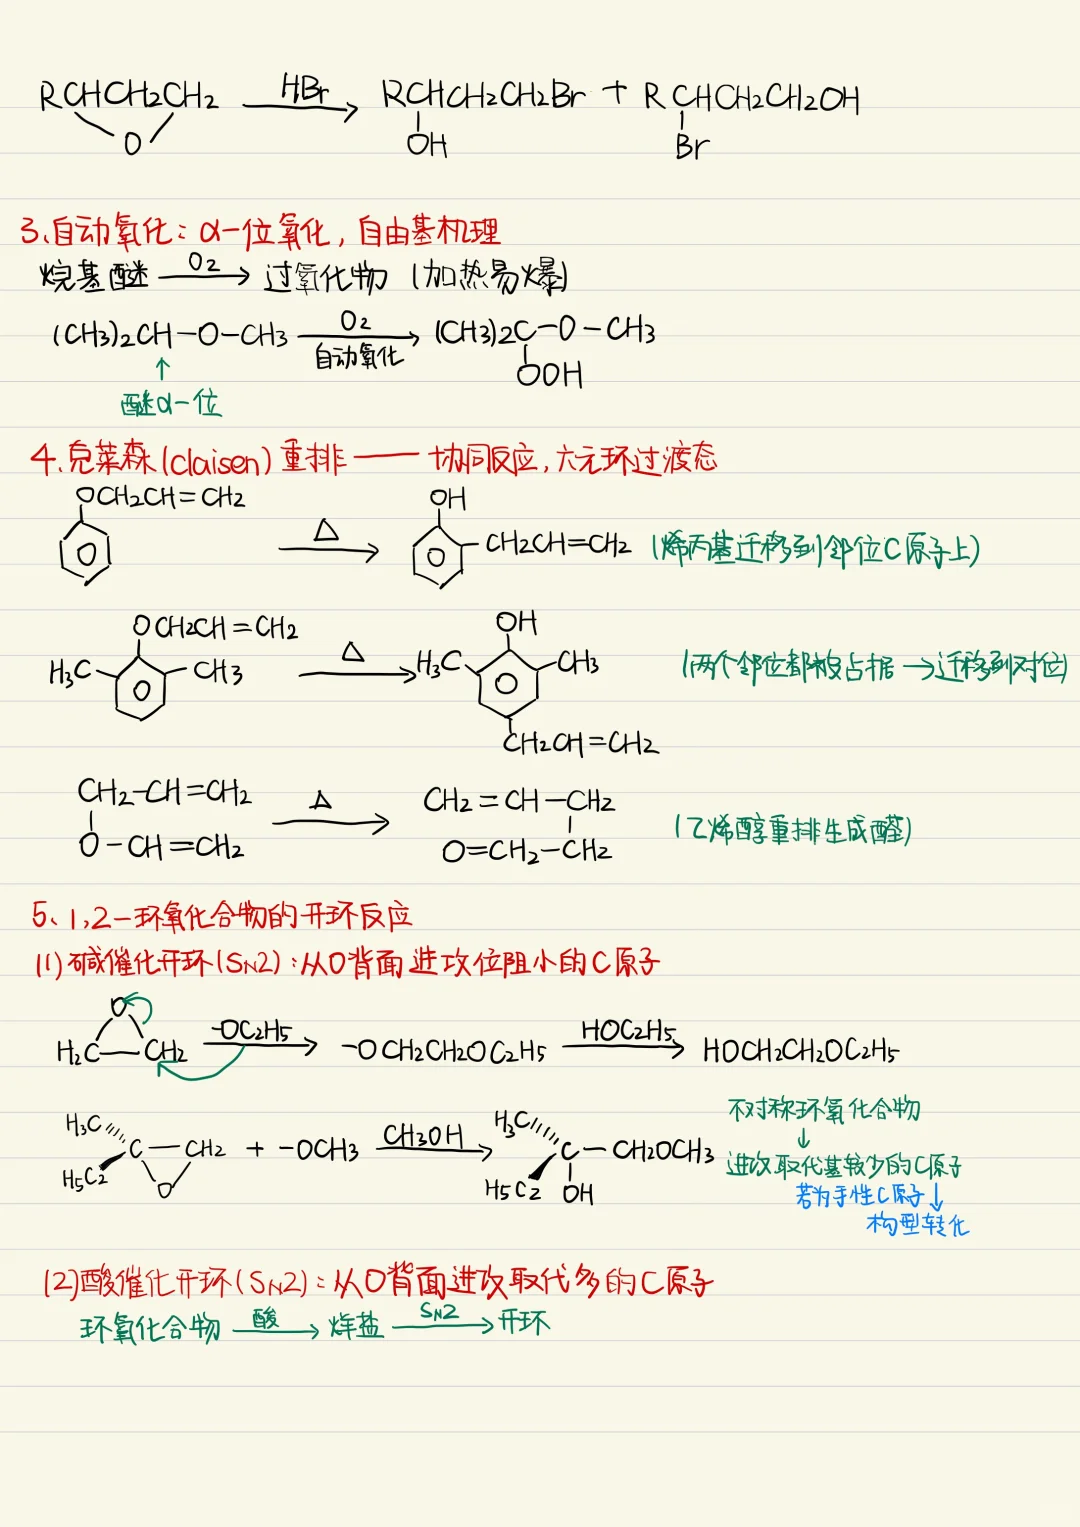 RCHCH2CH2 HBr→ RCHCH2CH2Br + RCHCH2CH2OH
O OH Br
3、自动氧化：α-位氧化，自由基机理
烷基醚 O2→ 过氧化物 (加热易爆)
(CH3)2CH-O-CH3 O2→ 自动氧化 (CH3)2C-O-CH3
↑ OOH
醚α-位
4、克莱森(claisen)重排——协同反应，六元环过渡态
OCH2CH=CH2 OH
△→ CH2CH=CH2 (烯丙基迁移到邻位C原子上)
OCH2CH=CH2 OH
H3C CH3 △→ H3C CH3 (两个邻位都被占据→迁移到对位)
CH2CH=CH2
CH2-CH=CH2 △→ CH2=CH-CH2
O-CH=CH2 O=CH2-CH2 (乙烯醇重排生成醛)
5、1,2-环氧化合物的开环反应
(1)碱催化开环(SN2)：从O背面进攻位阻小的C原子
O
H2C-CH2 -OC2H5→ -OCH2CH2OC2H5 HOC2H5→ HOCH2CH2OC2H5
H3C H3C 不对称环氧化合物
↓
C-CH2 + -OCH3 CH3OH→ C-CH2OCH3 进攻取代基较少的C原子
H5C2 O H5C2 OH 若为手性C原子↓
构型转化
(2)酸催化开环(SN2)：从O背面进攻取代多的C原子
环氧化合物 酸→ 烊盐 SN2→ 开环